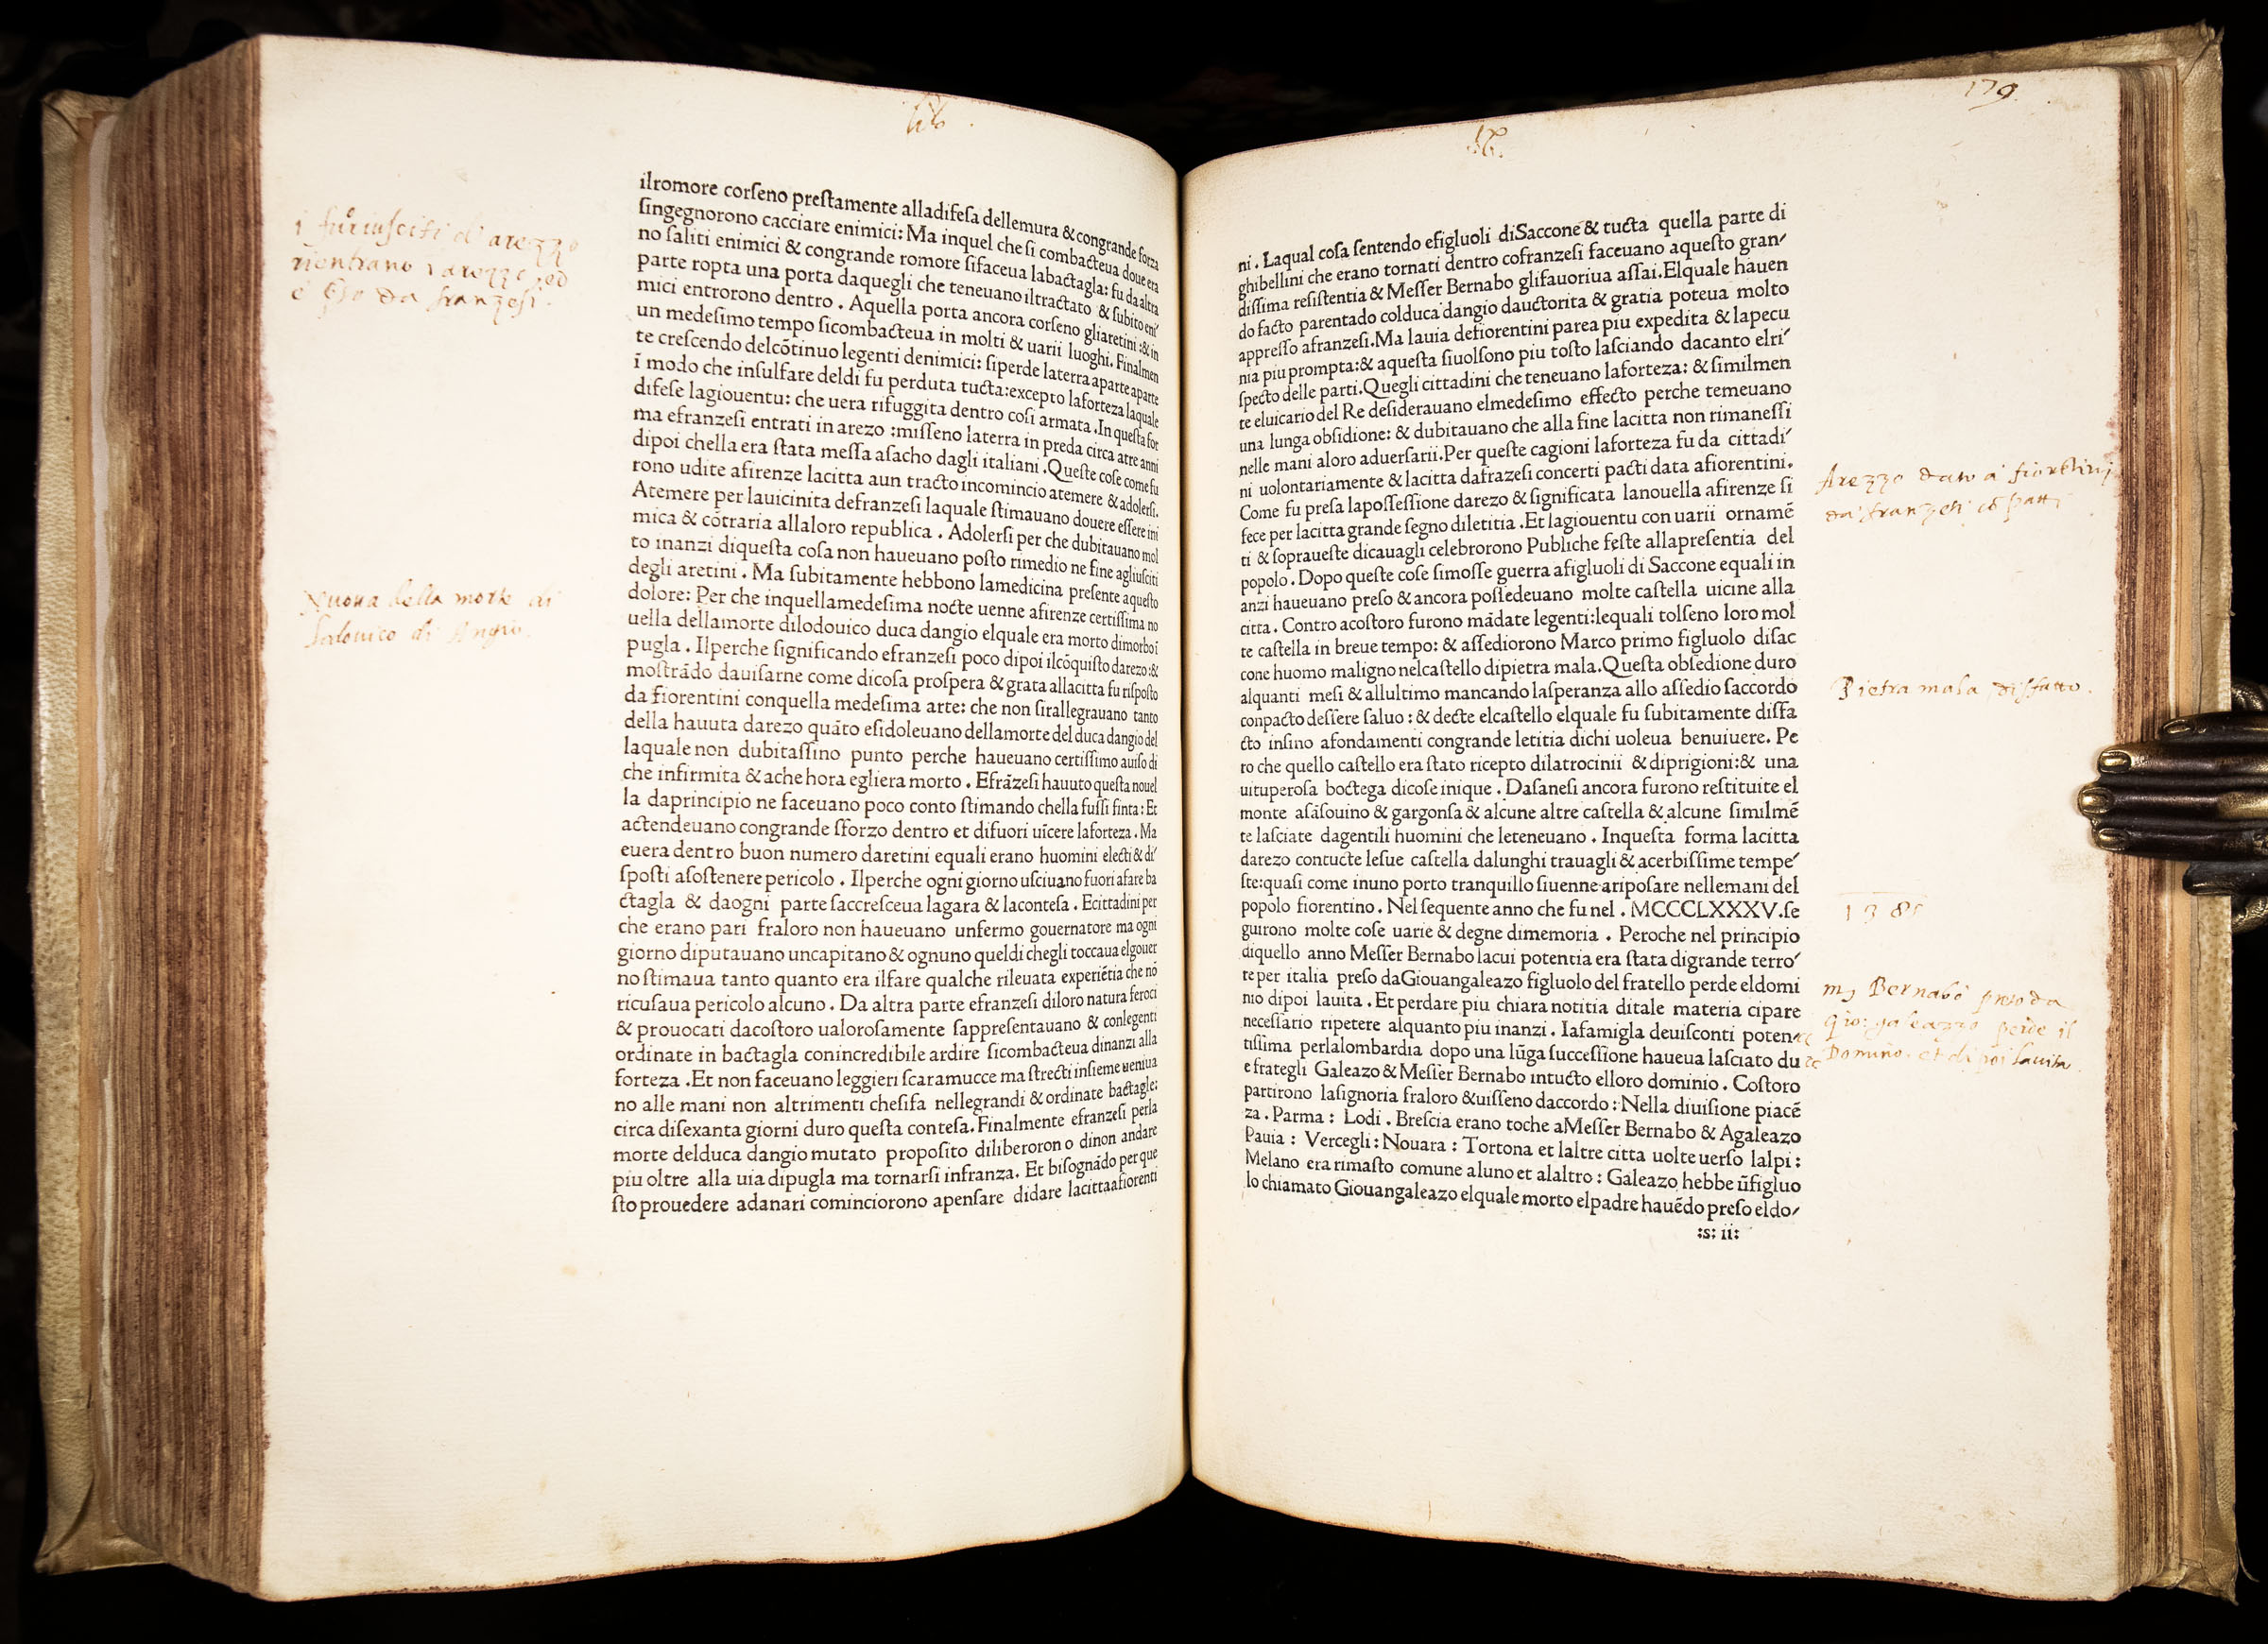 lib.
i furiusciti di arezzo
rientrano
da franzesi.
Nuova della morte di
Lodouico di Angio.
ilromore corſeno preſtamente alladifeſa dellemura & congrande forza
ſingegnorono cacciare enimici: Ma inquel che ſi combacteua doue era
no ſaliti enimici & congrande romore ſifaceua labactagla: fu da altra
parte ropta una porta daquegli che teneuano iltractato & ſubito eni/
mici entrorono dentro . Aquella porta ancora corſeno gliaretini :& in
un medeſimo tempo ſicombacteua in molti & uarii luoghi. Finalmen
te creſcendo delcōtinuo legenti denimici: ſiperde laterra aparte aparte
ī modo che inſulfare deldi fu perduta tucta:excepto laforteza laquale
difeſe lagiouentu: che uera rifuggita dentro coſi armata .In queſta for
ma efranzeſi entrati in arezo :miſſeno laterra in preda circa atre anni
dipoi chella era ſtata meſſa aſacho dagli italiani .Queſte coſe come fu
rono udite afirenze lacitta aun tracto incomincio atemere & adolerſi.
Atemere per lauicinita defranzeſi laquale ſtimauano douere eſſere ini
mica & cōtraria allaloro republica . Adolerſi per che dubitauano mol
to inanzi diqueſta coſa non haueuano poſto rimedio ne fine agliuſciti
degli aretini . Ma ſubitamente hebbono lamedicina preſente aqueſto
dolore: Per che inquellamedeſima nocte uenne afirenze certiſſima no
uella dellamorte dilodouico duca dangio elquale era morto dimorbo ī
pugla . Ilperche ſignificando efranzeſi poco dipoi ilcōquiſto darezo :&
moſtrādo dauiſarne come dicoſa proſpera & grata allacitta fu riſpoſto
da fiorentini conquella medeſima arte: che non ſirallegrauano tanto
della hauuta darezo quāto eſidoleuano dellamorte del duca dangio del
laquale non dubitaſſino punto perche haueuano certiſſimo auiſo di
che infirmita & ache hora egliera morto . Efrāzeſi hauuto queſta nouel
la daprincipio ne faceuano poco conto ſtimando chella fuſſi finta: Et
actendeuano congrande ſforzo dentro et difuori uīcere laforteza . Ma
euera dentro buon numero daretini equali erano huomini electi & di/
ſpoſti aſoſtenere pericolo . Ilperche ogni giorno uſciuano fuori afare ba
ctagla & daogni parte ſaccreſceua lagara & laconteſa . Ecittadini per
che erano pari fraloro non haueuano unfermo gouernatore ma ogni
giorno diputauano uncapitano & ognuno queldi chegli toccaua elgouer
no ſtimaua tanto quanto era ilfare qualche rileuata experiētia che nō
ricuſaua pericolo alcuno . Da altra parte efranzeſi diloro natura feroci
& prouocati dacoſtoro ualoroſamente ſappreſentauano & conlegenti
ordinate in bactagla conincredibile ardire ſicombacteua dinanzi alla
forteza .Et non faceuano leggieri ſcaramucce ma ſtrecti inſieme ueniua
no alle mani non altrimenti cheſifa nellegrandi & ordinate bactagle:
circa diſexanta giorni duro queſta conteſa. Finalmente efranzeſi perla
morte delduca dangio mutato propoſito diliberoron o dinon andare
piu oltre alla uia dipugla ma tornarſi infranza. Et biſognādo per que
ſto prouedere adanari cominciorono apenſare didare lacittaafiorenti
179.
IX
ni . Laqual coſa ſentendo efigluoli diSaccone & tucta quella parte di
ghibellini che erano tornati dentro cofranzeſi faceuano aqueſto gran/
diſſima reſiſtentia & Meſſer Bernabo glifauoriua aſſai.Elquale hauen
do facto parentado colduca dangio dauctorita & gratia poteua molto
appreſſo afranzeſi.Ma lauia defiorentini parea piu expedita & lapecu
nia piu prompta:& aqueſta ſiuolſono piu toſto laſciando dacanto elri/
ſpecto delle parti.Quegli cittadini che teneuano laforteza: & ſimilmen
te eluicario del Re deſiderauano elmedeſimo effecto perche temeuano
una lunga obſidione: & dubitauano che alla fine lacitta non rimaneſſi
nelle mani aloro aduerſarii.Per queſte cagioni laforteza fu da cittadi/
ni uolontariamente & lacitta dafrazeſi concerti pacti data afiorentini.
Come fu preſa lapoſſeſſione darezo & ſignificata lanouella afirenze ſi
fece per lacitta grande ſegno diletitia .Et lagiouentu con uarii ornamē
ti & ſoprauefte dicauagli celebrorono Publiche feſte allapreſentia del
popolo . Dopo queſte coſe ſimoſſe guerra afigluoli di Saccone equali in
anzi haueuano preſo & ancora poſſedeuano molte caſtella uicine alla
citta . Contro acoſtoro furono mādate legenti:lequali tolſeno loro mol
te caſtella in breue tempo: & aſſediorono Marco primo figluolo diſac
cone huomo maligno nelcaſtello dipietra mala.Queſta obſedione duro
alquanti meſi & allultimo mancando laſperanza allo aſſedio ſaccordo
conpacto deſſere ſaluo : & decte elcaſtello elquale fu ſubitamente diſfa
cto inſino afondamenti congrande letitia dichi uoleua benuiuere. Pe
ro che quello caſtello era ſtato ricepto dilatrocinii & diprigioni:& una
uituperoſa boctega dicoſe inique . Daſaneſi ancora furono reſtituite el
monte aſāſouino & gargonſa & alcune altre caſtella & alcune ſimilmē
te laſciate dagentili huomini che leteneuano . Inqueſta forma lacitta
darezo contucte leſue caſtella dalunghi trauagli & acerbiſſime tempe/
ſte:quaſi come inuno porto tranquillo ſiuenne aripoſare nellemani del
popolo fiorentino . Nel ſequente anno che fu nel . MCCCLXXXV.ſe
guirono molte coſe uarie & degne dimemoria . Peroche nel principio
diquello anno Meſſer Bernabo lacui potentia era ſtata digrande terro/
re per italia preſo daGiouangaleazo figluolo del fratello perde eldomi
nio dipoi lauita . Et perdare piu chiara notitia ditale materia cipare
neceſſario ripetere alquanto piu inanzi . Iafamigla deuiſconti poten
tiſſima perlalombardia dopo una lūga ſucceſſione haueua laſciato du
e frategli Galeazo & Meſſer Bernabo intucto elloro dominio . Coſtoro
partirono laſignoria fraloro &uiſſeno daccordo : Nella diuiſione piacē
za . Parma : Lodi . Breſcia erano toche aMeſſer Bernabo & Agaleazo
Pauia : Vercegli : Nouara : Tortona et laltre citta uolte uerſo lalpi :
Melano era rimaſto comune aluno et alaltro : Galeazo hebbe ūfigluo
lo chiamato Giouangaleazo elquale morto elpadre hauēdo preſo eldo/
:s: ii:
Arezzo dato a' fiorentini
da' franzesi cō patti
Pietra mala disfatto.
1385
Bernabò preso da
Gio: galeazzo perde il
Dominio. et di poi la uita.